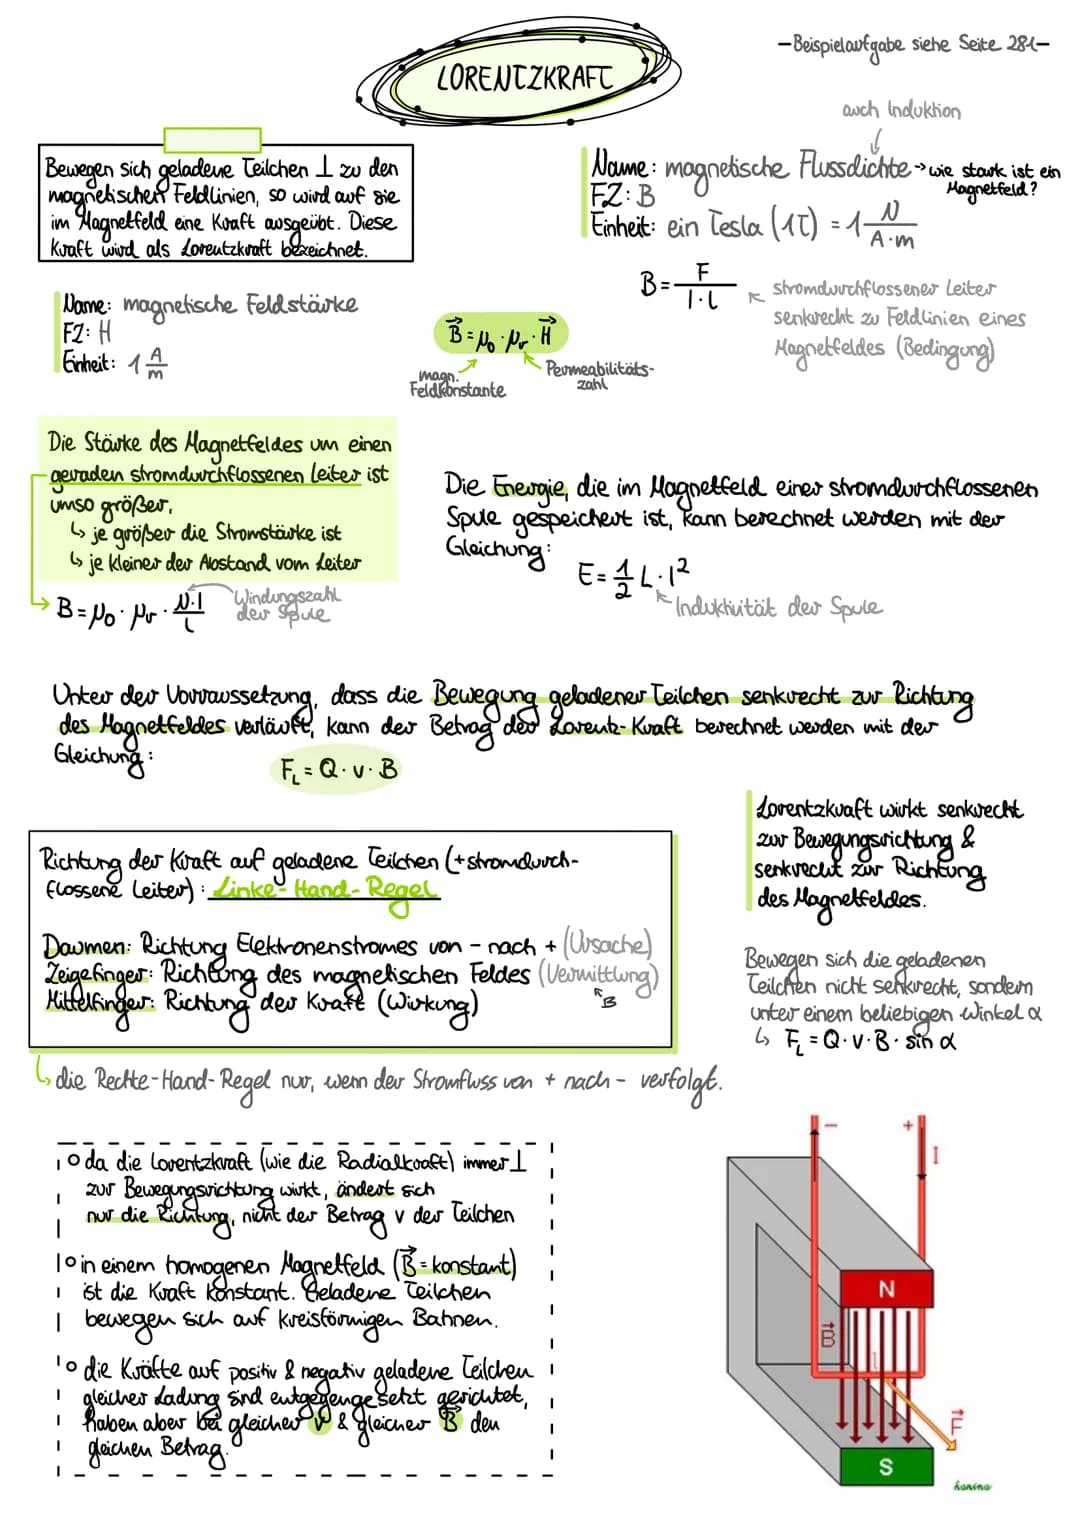 -Beispielaufgabe siehe Seite 281-
LORENTZKRAFT
auch Induktion
Bewegen sich geladene Teilchen ⊥ zu den
magnetischen Feldlinien, so wird auf sie
im Magnetfeld eine Kraft ausgeübt. Diese
Kraft wird als Lorentzkraft bezeichnet.
Name: magnetische Flussdichte → wie stark ist ein
Magnetfeld?
FZ: B
Einheit: ein Tesla (1T) = 1 N/A·m
B = F/I·l
stromdurchflossener Leiter
senkrecht zu Feldlinien eines
Magnetfeldes (Bedingung)
Name: magnetische Feldstärke
FZ: H
Einheit: 1 A/m
B⃗ = μ₀ · μr · H⃗
magn.
Feldkonstante
Permeabilitäts-
zahl
Die Stärke des Magnetfeldes um einen
geraden stromdurchflossenen Leiter ist
umso größer,
↳ je größer die Stromstärke ist
↳ je kleiner der Abstand vom Leiter
B = μ₀ · μr · N·I/l
Windungszahl
der Spule
Die Energie, die im Magnetfeld einer stromdurchflossenen
Spule gespeichert ist, kann berechnet werden mit der
Gleichung:
E = 1/2 L · I²
Induktivität der Spule
Unter der Vorraussetzung, dass die Bewegung geladener Teilchen senkrecht zur Richtung
des Magnetfeldes verläuft, kann der Betrag der Lorentz-Kraft berechnet werden mit der
Gleichung:
F_L = Q · v · B
Lorentzkraft wirkt senkrecht
zur Bewegungsrichtung &
senkrecht zur Richtung
des Magnetfeldes.
Richtung der Kraft auf geladene Teilchen (+stromdurch-
flossene Leiter): Linke-Hand-Regel
Daumen: Richtung Elektronenstromes von - nach + (Ursache)
Zeigefinger: Richtung des magnetischen Feldes (Vermittlung)
B
Mittelfinger: Richtung der Kraft (Wirkung)
↳ die Rechte-Hand-Regel nur, wenn der Stromfluss von + nach - verfolgt.
Bewegen sich die geladenen
Teilchen nicht senkrecht, sondern
unter einem beliebigen Winkel α
↳ F_L = Q · v · B · sin α
o da die Lorentzkraft (wie die Radialkraft) immer ⊥
zur Bewegungsrichtung wirkt, ändert sich
nur die Richtung, nicht der Betrag v der Teilchen
o in einem homogenen Magnetfeld (B⃗ = konstant)
ist die Kraft konstant. Geladene Teilchen
bewegen sich auf kreisförmigen Bahnen.
o die Kräfte auf positiv & negativ geladene Teilchen
gleicher Ladung sind entgegengesetzt gerichtet,
haben aber bei gleicher v⃗ & gleicher B⃗ den
gleichen Betrag.
- +
I
N
B⃗
l
F⃗
S